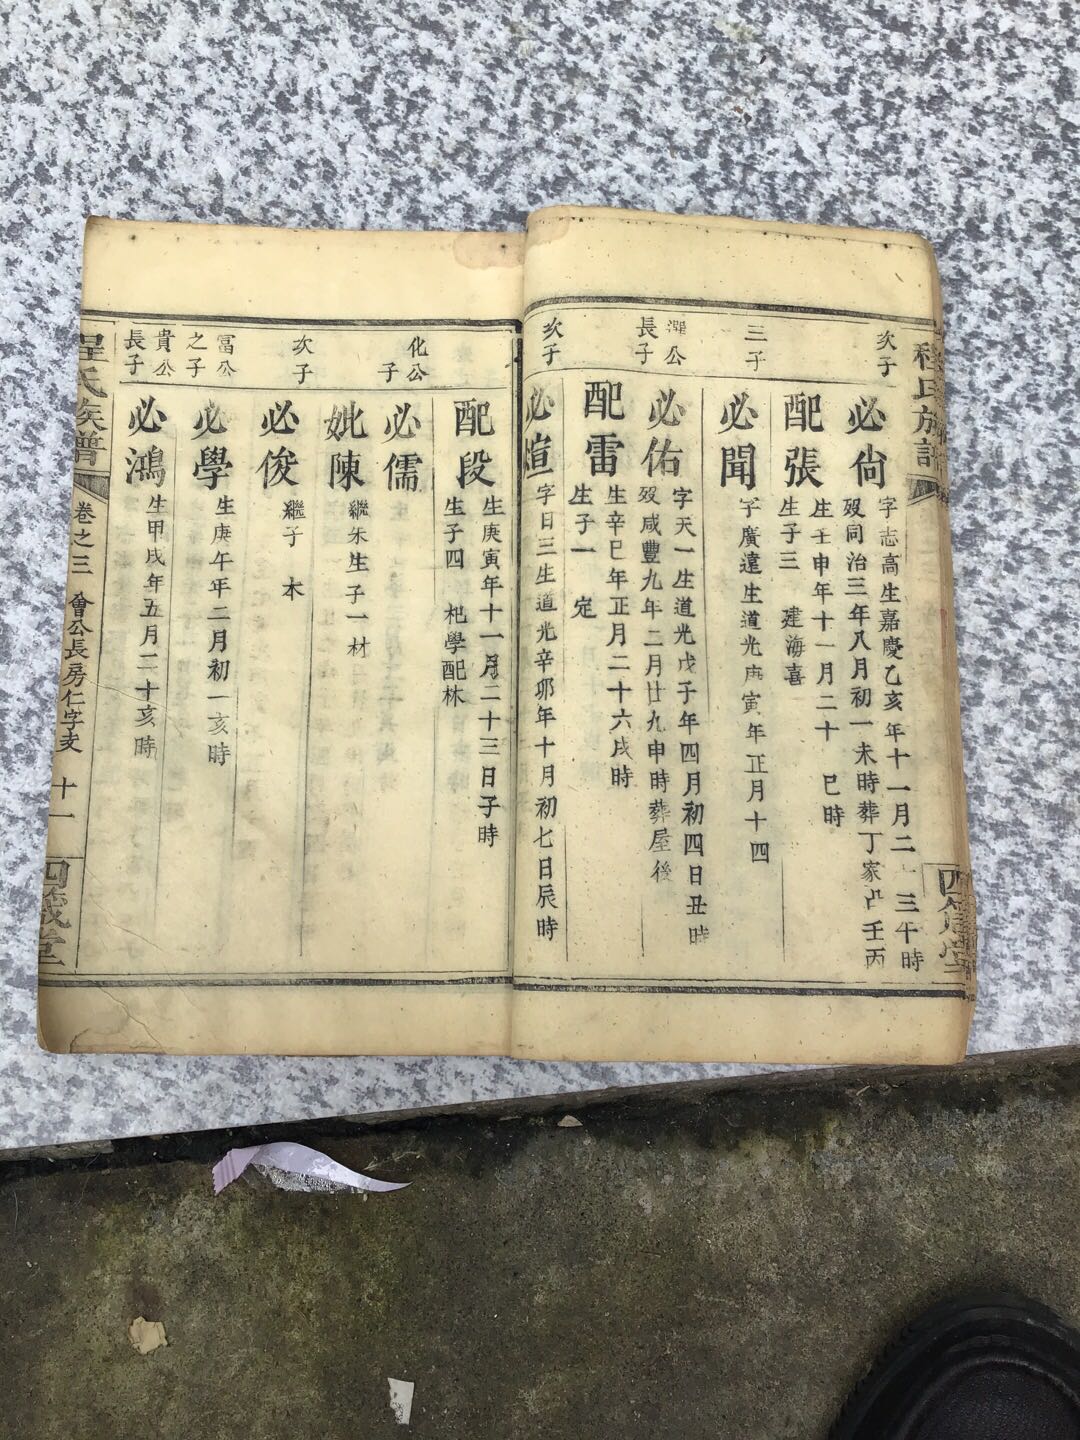 程氏族譜
次子
必尙
字志高生嘉慶乙亥年十一月二十三午時
歿同治三年八月初一未時葬丁家凸壬丙
配張
生壬申年十一月二十 巳時
生子三 建海喜
三子
必聞
字廣遠生道光庚寅年正月十四
公
長子
必佑
字天一生道光戊子年四月初四日丑時
歿咸豐九年二月廿九申時葬屋後
配雷
生辛巳年正月二十六戌時
生子一 定
次子
必煊
字日三生道光辛卯年十月初七日辰時
配段
生庚寅年十一月二十三日子時
生子四 杞學配林
化公
子
必儒
妣陳
繼朱生子一材
次子
必俊
繼子 木
冨公
之子
必學
生庚午年二月初一亥時
貴公
長子
必鴻
生甲戌年五月二十亥時
程氏族譜
卷之三
會公長房仁字支
十一
四箴堂